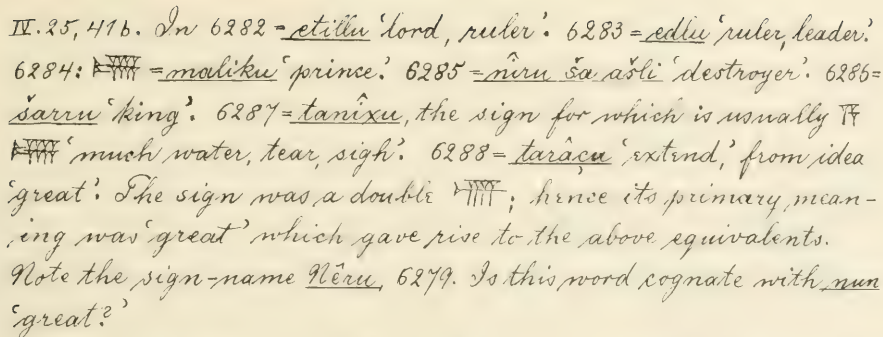 IV. 25, 41b. In 6282 = etillu 'lord, ruler'. 6283 = edlu 'ruler, leader'.
6284: = maliku 'prince'. 6285 = nîru ša ašli 'destroyer'. 6286 =
šarru 'king'. 6287 = tanîxu, the sign for which is usually
'much water, tear, sigh'. 6288 = tarâçu 'extend', from idea
'great'. The sign was a double ; hence its primary mean-
ing was 'great' which gave rise to the above equivalents.
Note the sign-name Nêru, 6279. Is this word cognate with nun
'great?'